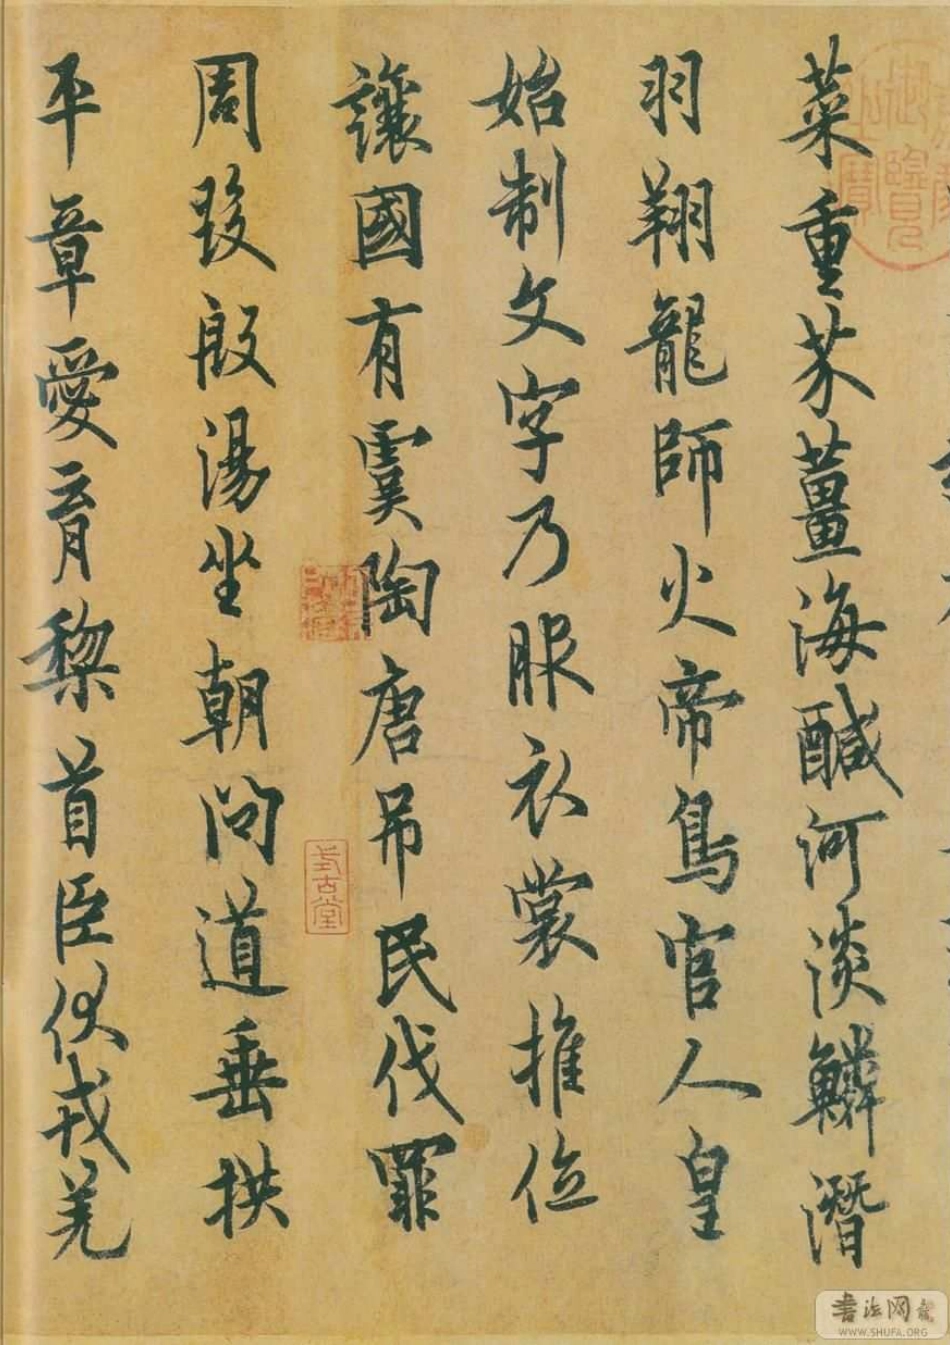 菜重芥薑海鹹河淡鱗潛
羽翔龍師火帝鳥官人皇
始制文字乃服衣裳推位
讓國有虞陶唐吊民伐罪
周發殷湯坐朝問道垂拱
平章愛育黎首臣伏戎羌
式古堂
书法网
WWW.SHUFA.ORG